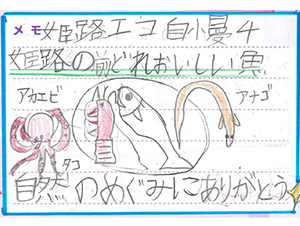 メモ 姫路エコ自慢4
姫路の前どれおいしい魚
アカエビ
アナゴ
タコ
自然のめぐみにありがとう